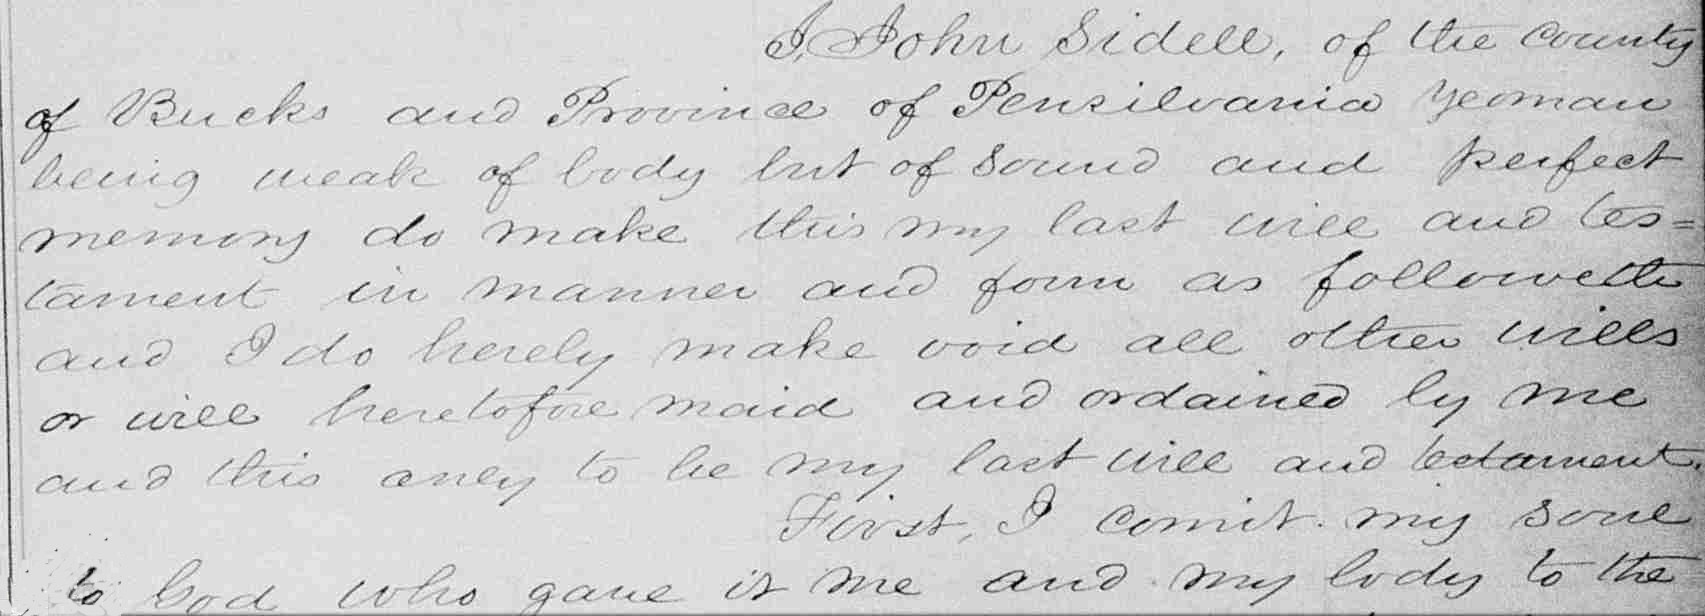 I, John Sidell, of the County
of Bucks and Province of Pensilvania yeoman
being weak of body but of sound and perfect
memory do make this my last will and tes=
tament in manner and form as followeth
and I do hereby make void all other wills
or will heretofore maid and ordained by me
and this only to be my last will and testament.
First, I comit my soul
to God who gave it me and my body to the